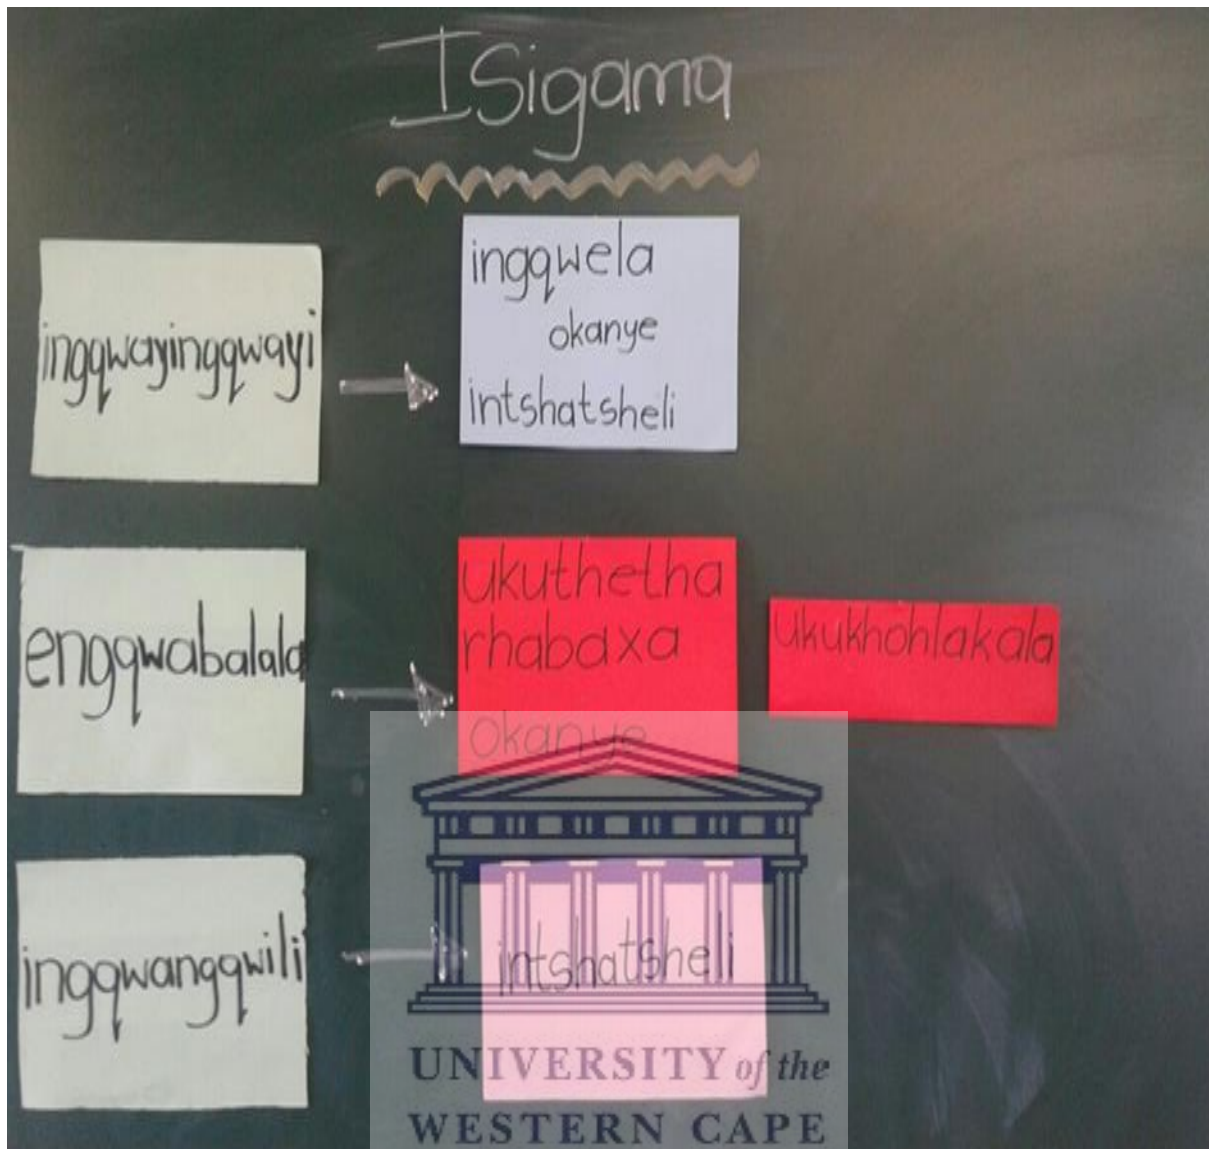 Isigama
ingqwayingqwayi
ingqwela
okanye
intshatsheli
engqwabalala
ukuthetha
rhabaxa
okanye
ukukhohlakala
ingqwangqwili
intshatsheli
UNIVERSITY of the
WESTERN CAPE